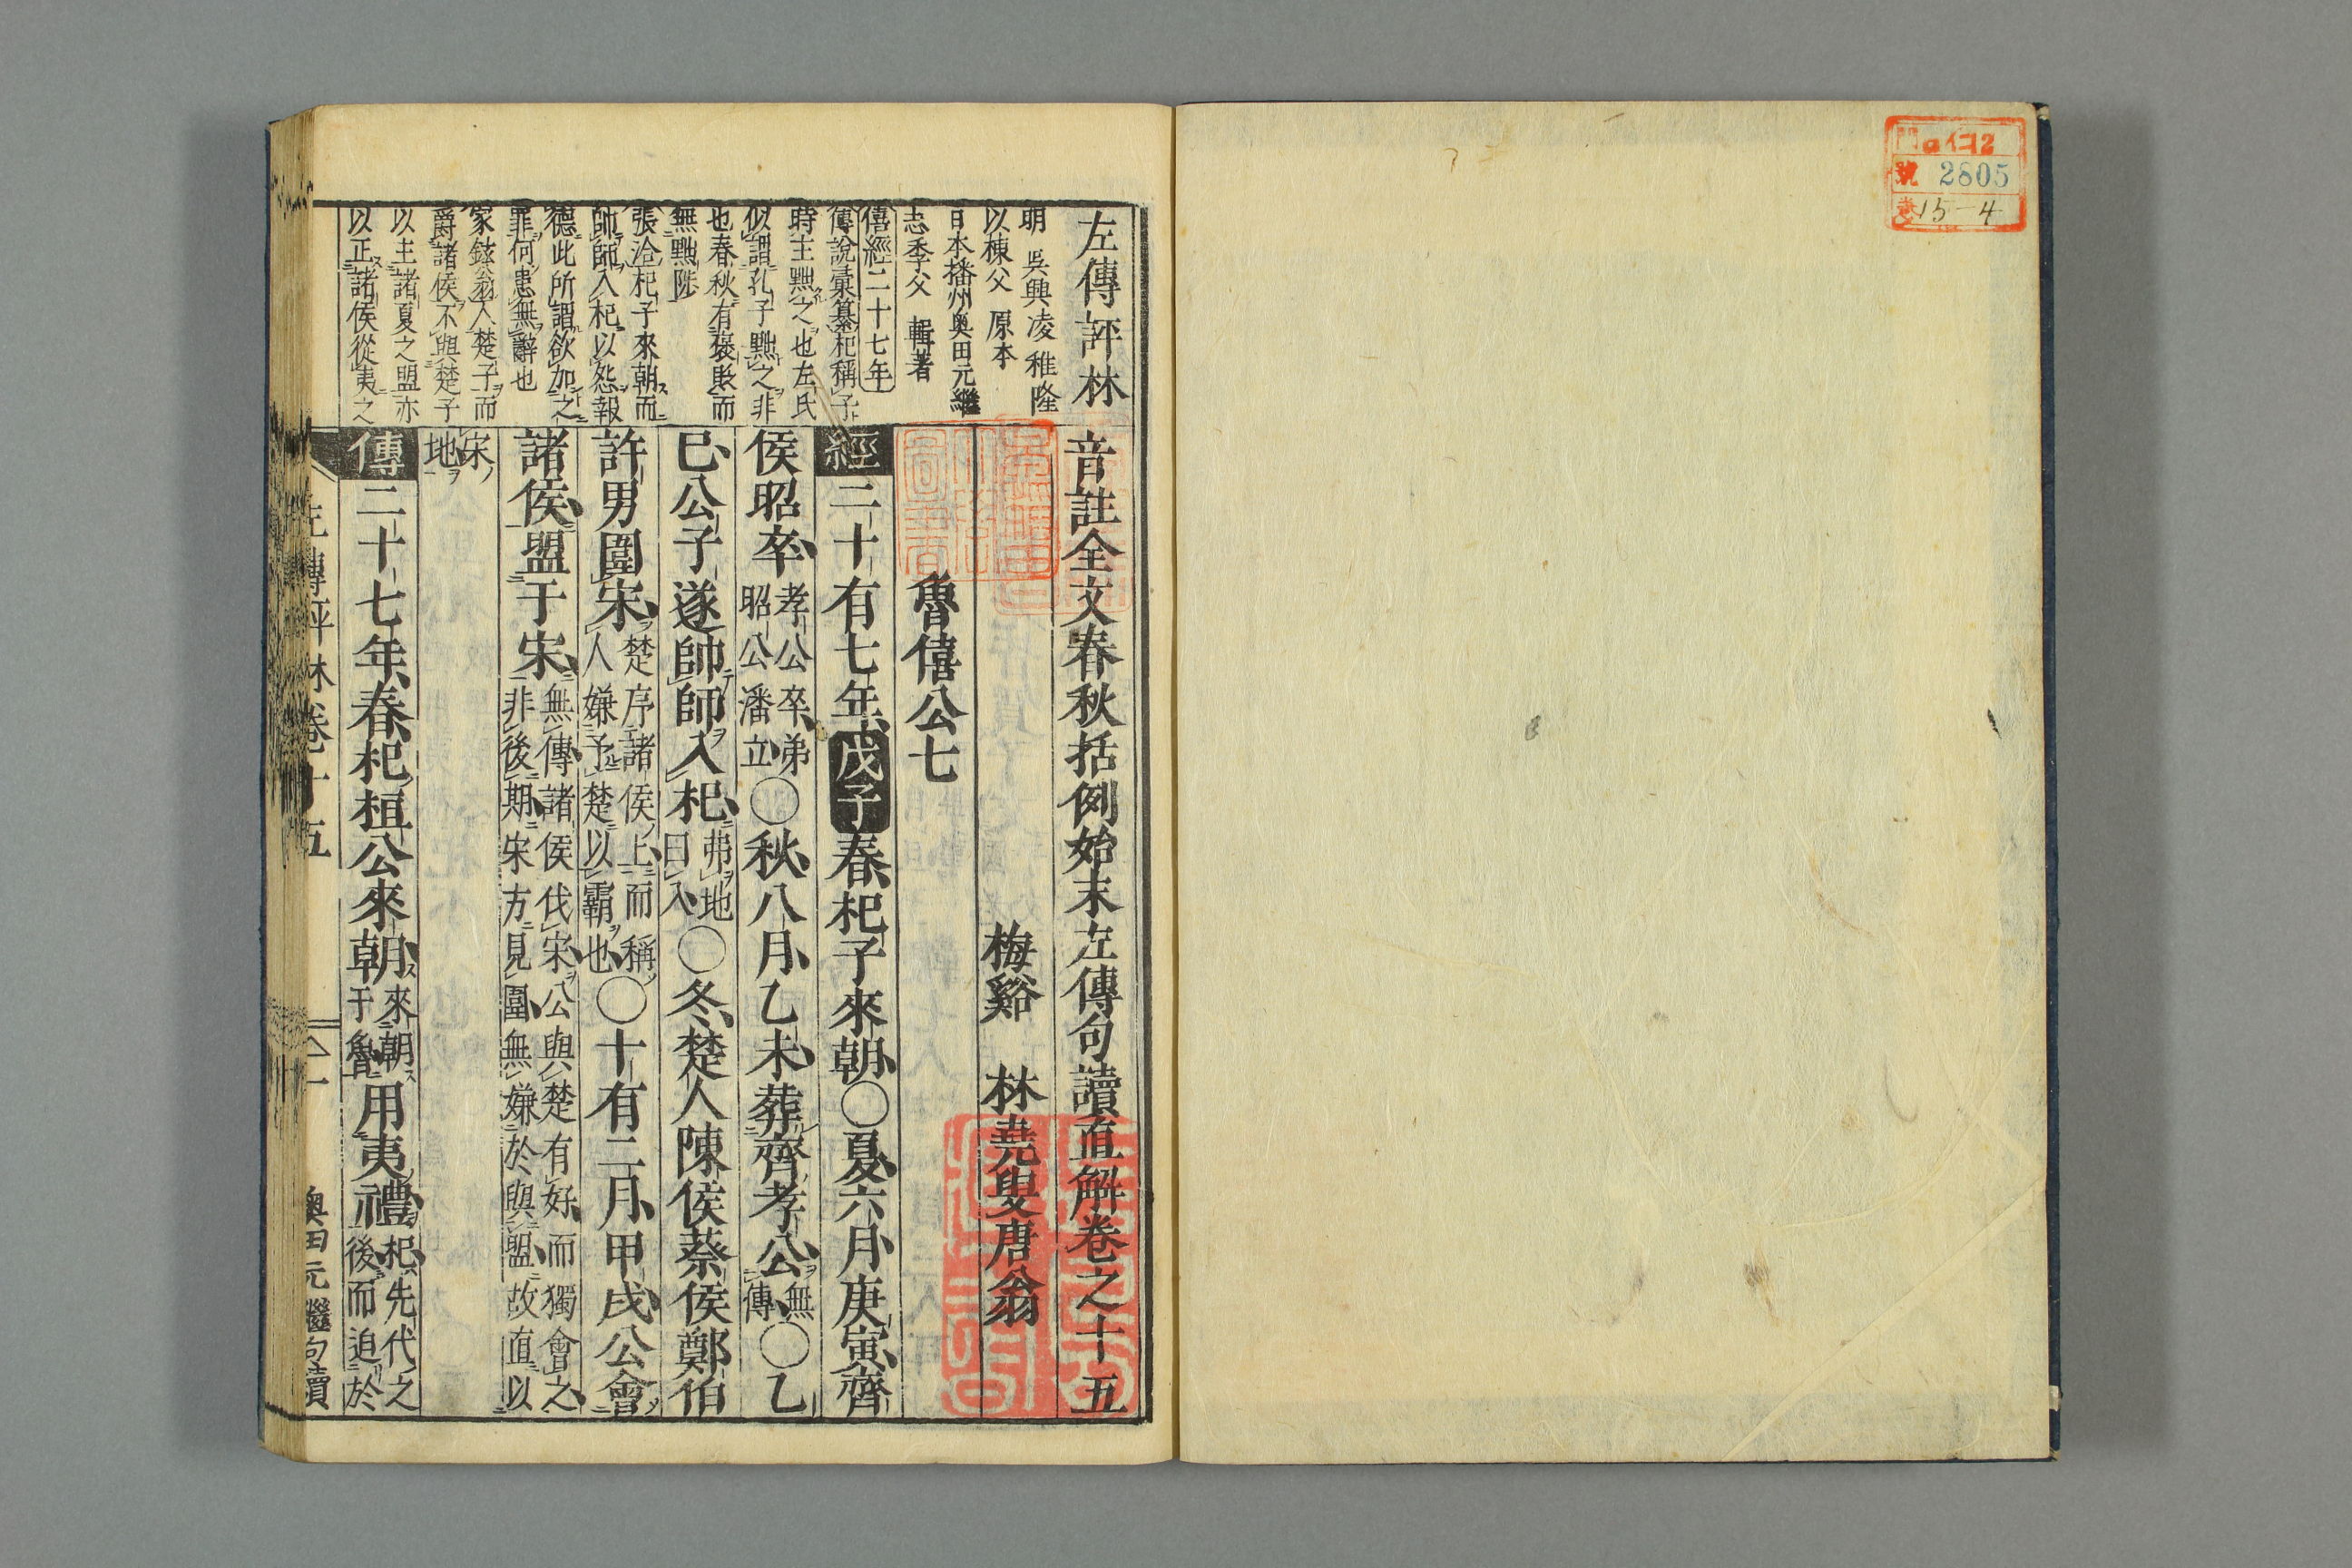 門 口仁12
號 2805
巻 15-4
左傳評林
明 吳興凌稚隆
以棟父 原本
日本播州奥田元繼
志季父 輯著
僖經二十七年
傳説彙纂杞稱子
時王黜之也左氏
似謂孔子黜之非
也春秋有襃貶而
無黜陟
張洽杞子來朝而
師師入杞以怨報
德此所謂欲加之
罪何患無辭也
家鉉翁人楚子而
爵諸侯不與楚子
以主諸夏之盟亦
以正諸侯從夷之
音註全文春秋括例始末左傳句讀直解卷之十五
梅谿 林堯叟唐翁
魯僖公七
經二十有七年戊子春杞子來朝○夏六月庚寅齊
侯昭卒孝公卒弟昭公潘立○秋八月乙未葬齊孝公無傳○乙
巳公子遂帥師入杞弗地曰入○冬楚人陳侯蔡侯鄭伯
許男圍宋楚序諸侯上而稱人嫌予楚以霸也○十有二月甲戌公會
諸侯盟于宋無傳諸侯伐宋公與楚有好而獨會之非後期宋方見圍無嫌於與盟故直以
宋地
傳二十七年春杞桓公來朝來朝于魯用夷禮杞先代之後而追於
左傳評林卷十五 一 奥田元繼句讀